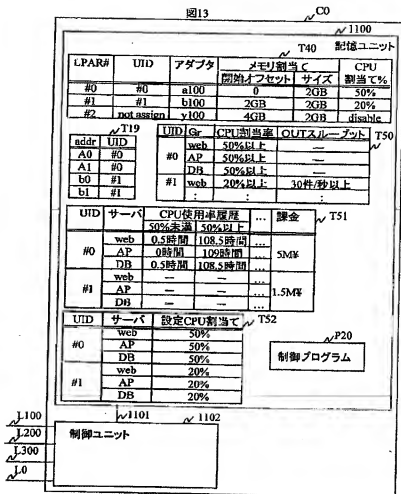 図13
C0
1100
T40 記憶ユニット
LPAR# UID アダプタ メモリ割当て CPU
開始オフセット サイズ 割当て%
#0 #0 a100 0 2GB 50%
#1 #1 b100 2GB 2GB 20%
#2 not assign y100 4GB 2GB disable
T19
addr UID
A0 #0
A1 #0
b0 #1
b1 #1
UID Gr CPU割当率 OUTスループット T50
#0 web 50%以上 —
AP 50%以上 —
DB 50%以上 —
#1 web 20%以上 30件/秒以上
: : :
UID サーバ CPU使用率履歴 ... 課金 T51
50%未満 50%以上
#0 web 0.5時間 108.5時間 ... 5M¥
AP 0時間 109時間 ...
DB 0.5時間 108.5時間 ...
#1 web — — ... 1.5M¥
AP — — ...
DB — — ...
UID サーバ 設定CPU割当て T52
#0 web 50%
AP 50%
DB 50%
#1 web 20%
AP 20%
DB 20%
P20
制御プログラム
1101 1102
L100
L200
L300
L0
制御ユニット